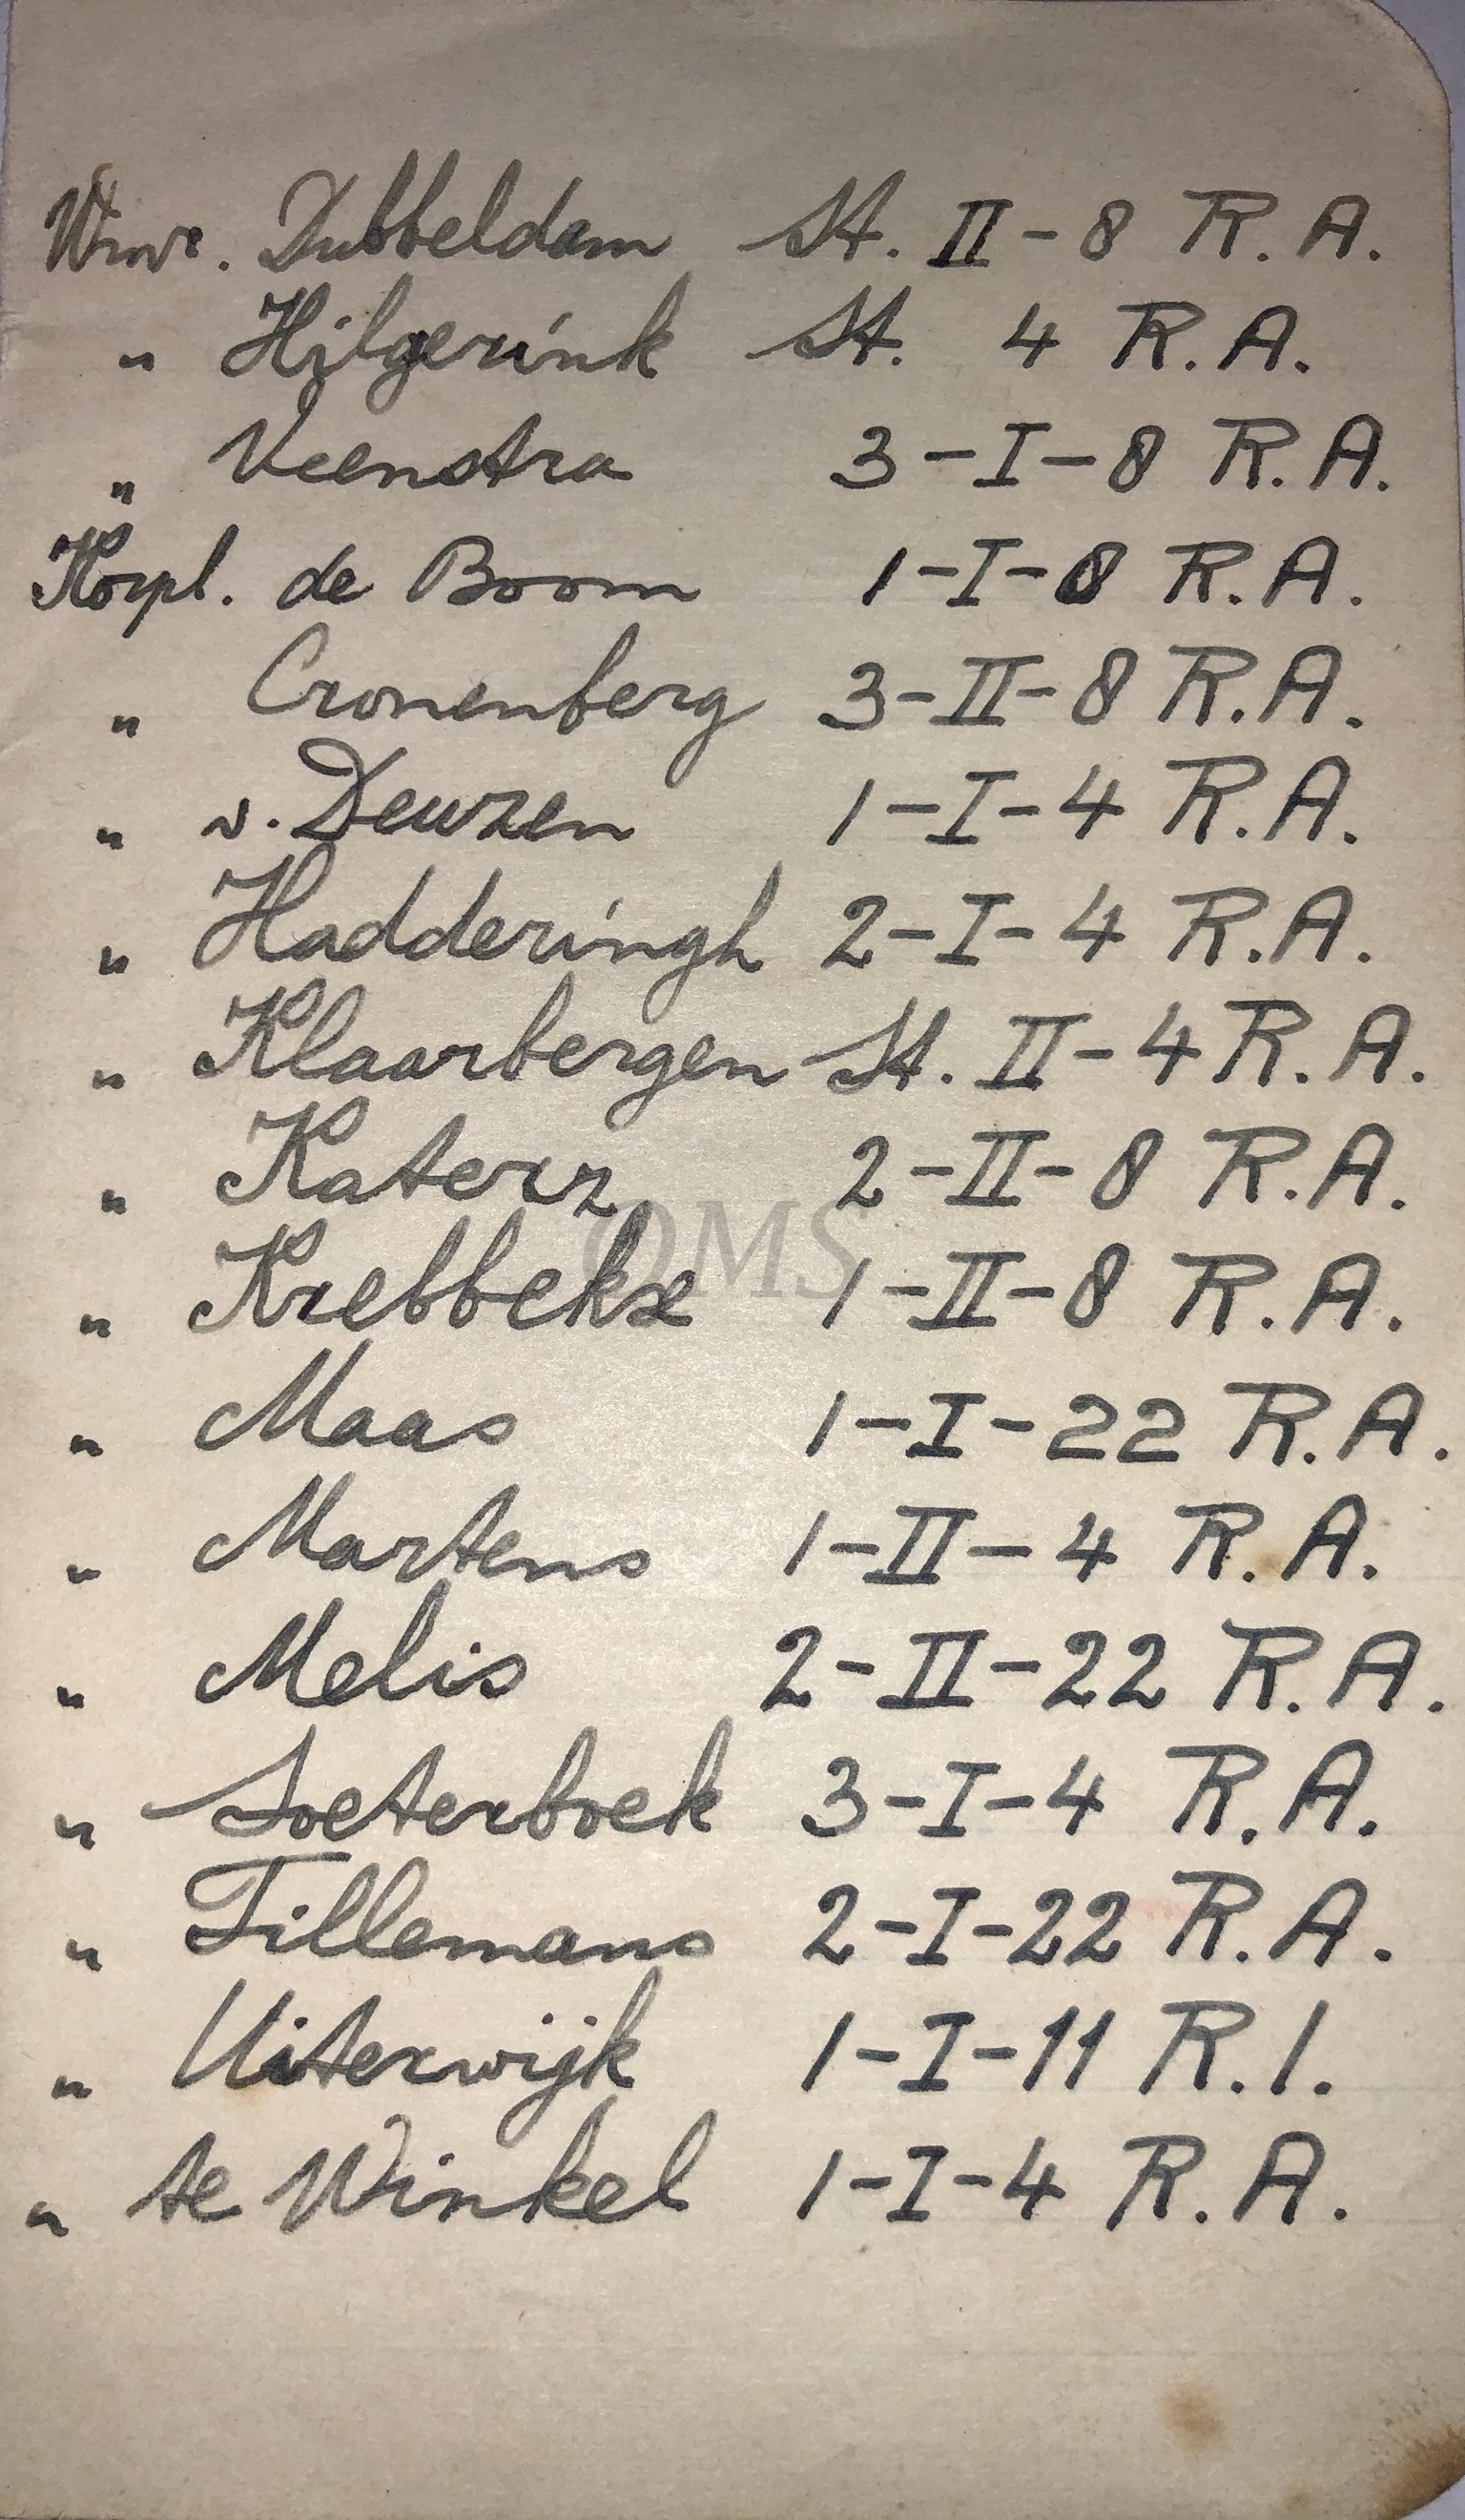 Wmr. Dubbeldam St. II-8 R.A.
" Hilgerink St. 4 R.A.
" Veenstra 3-I-8 R.A.
Korpl. de Boom 1-I-8 R.A.
" Cronenberg 3-II-8 R.A.
" v. Deurzen 1-I-4 R.A.
" Hadderingh 2-I-4 R.A.
" Klaarbergen St. II-4 R.A.
" Katerz 2-II-8 R.A.
OMS
" Krebbekx 1-II-8 R.A.
" Maas 1-I-22 R.A.
" Martens 1-II-4 R.A.
" Melis 2-II-22 R.A.
" Soeterboek 3-I-4 R.A.
" Tillemans 2-I-22 R.A.
" Uiterwijk 1-I-11 R.I.
" te Winkel 1-I-4 R.A.